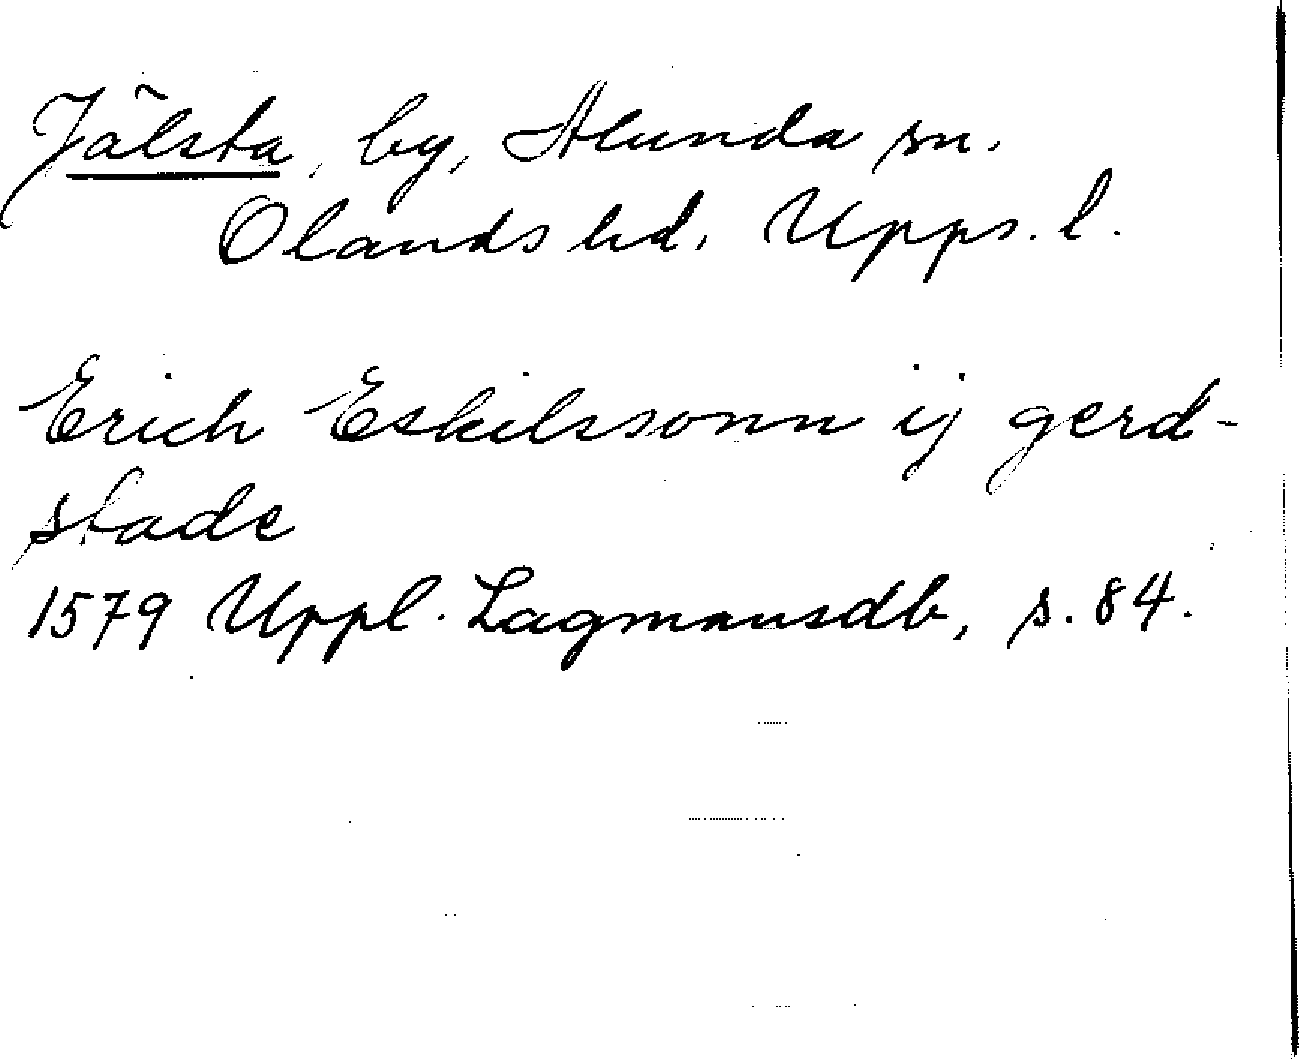 Jälsta, by, Alunda sn.
Olands hd. Upps. l.
Erich Eskilssonn ij gerd-
stade
1579 Uppl. Lagmansdb, s. 84.